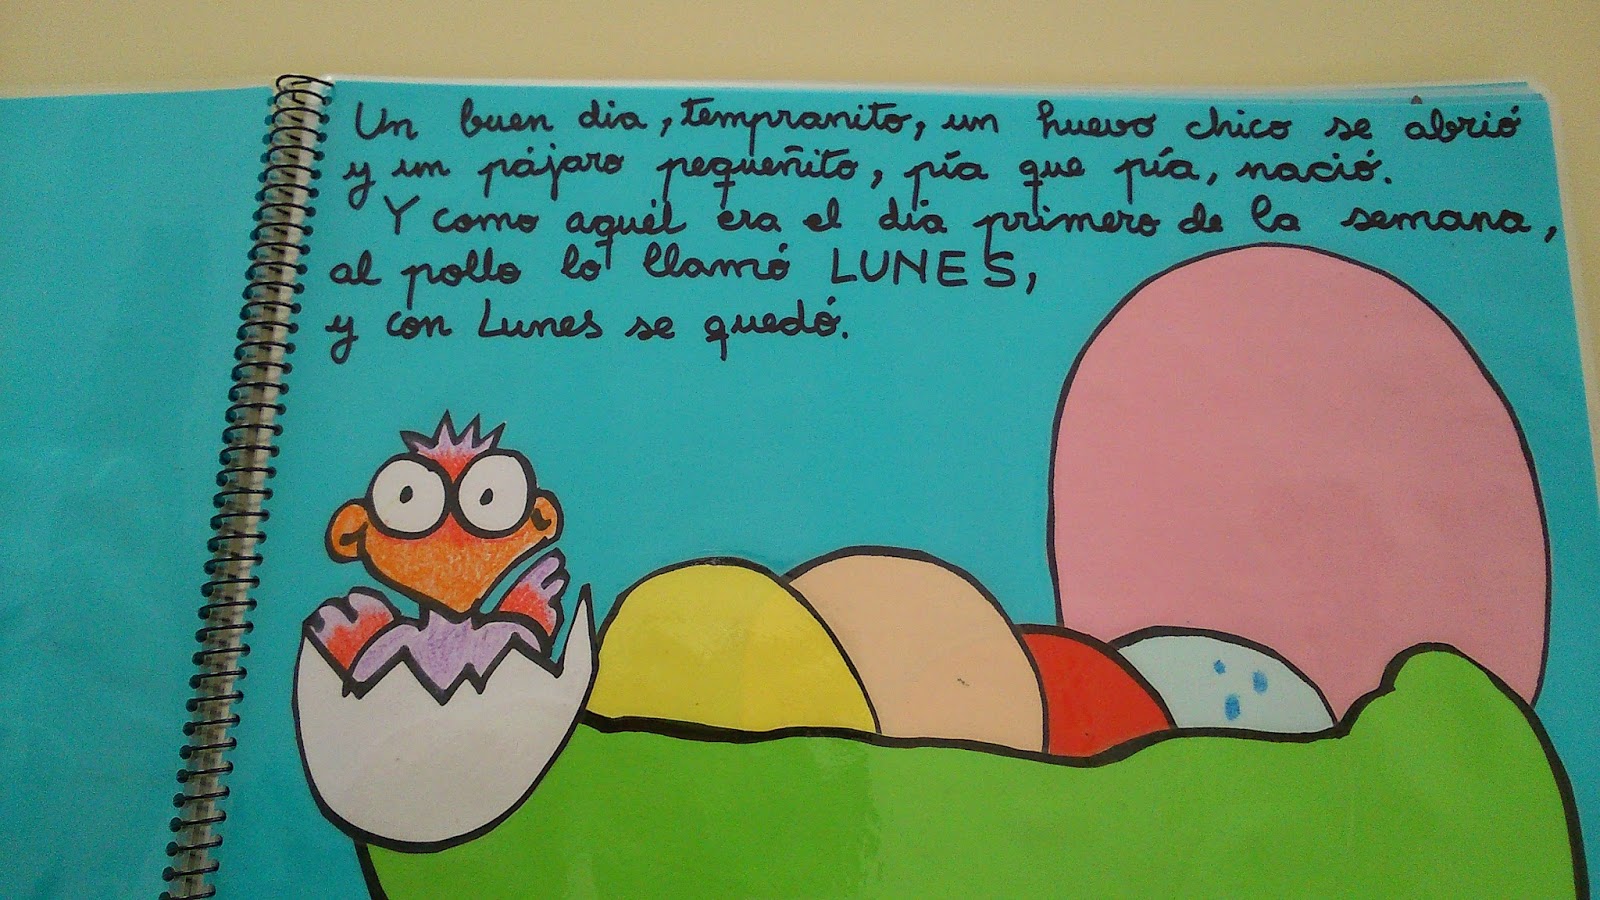 Un buen dia, tempranito, un huevo chico se abrió
y un pájaro pequeñito, pía que pía, nació.
Y como aquél era el dia primero de la semana,
al pollo lo llamó LUNES,
y con Lunes se quedó.